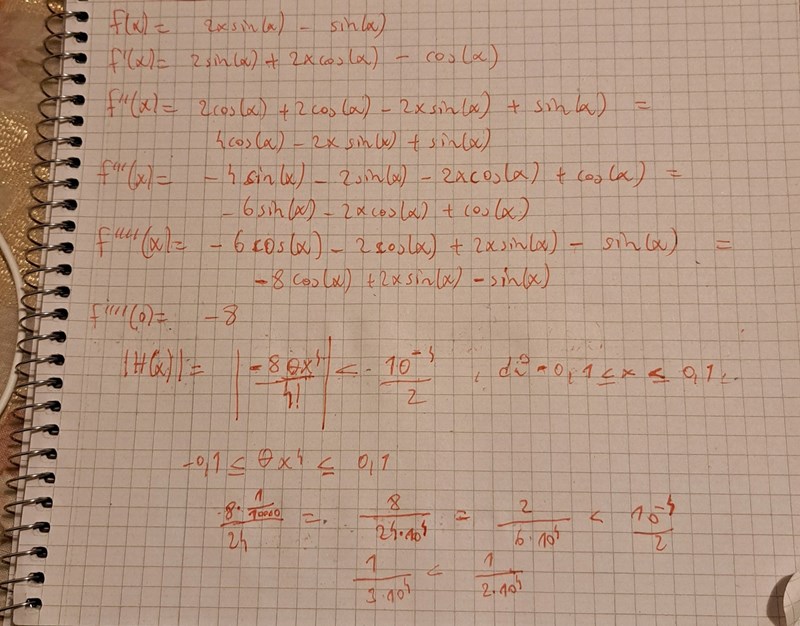 f(x) = 2x sin(x) - sin(x)
f'(x) = 2 sin(x) + 2x cos(x) - cos(x)
f''(x) = 2 cos(x) + 2 cos(x) - 2x sin(x) + sin(x) =
4 cos(x) - 2x sin(x) + sin(x)
f'''(x) = -4 sin(x) - 2 sin(x) - 2x cos(x) + cos(x) =
-6 sin(x) - 2x cos(x) + cos(x)
f''''(x) = -6 cos(x) - 2 cos(x) + 2x sin(x) - sin(x) =
-8 cos(x) + 2x sin(x) - sin(x)
f''''(0) = -8
|H(x)| = |-8 θx⁴ / 4!| < 10⁻⁴ / 2 , då -0,1 ≤ x ≤ 0,1
-0,1 ≤ θx⁴ ≤ 0,1
8 · 1/10000 / 24 = 8 / 24·10⁴ = 2 / 6·10⁴ < 10⁻⁴ / 2
1 / 3·10⁴ < 1 / 2·10⁴